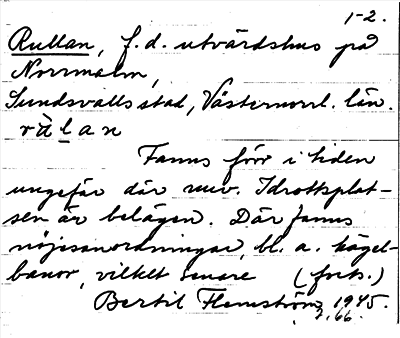 1-2.
Rullan, f.d. utvärdshus på
Norrmalm,
Sundsvalls stad, Västernorrl. län.
rùlan
Fanns förr i tiden
ungefär där nuv. Idrottsplat-
sen är belägen. Där fanns
nöjesanordningar, bl. a. kägel-
banor, vilket senare (forts.)
Bertil Flemström 1945.